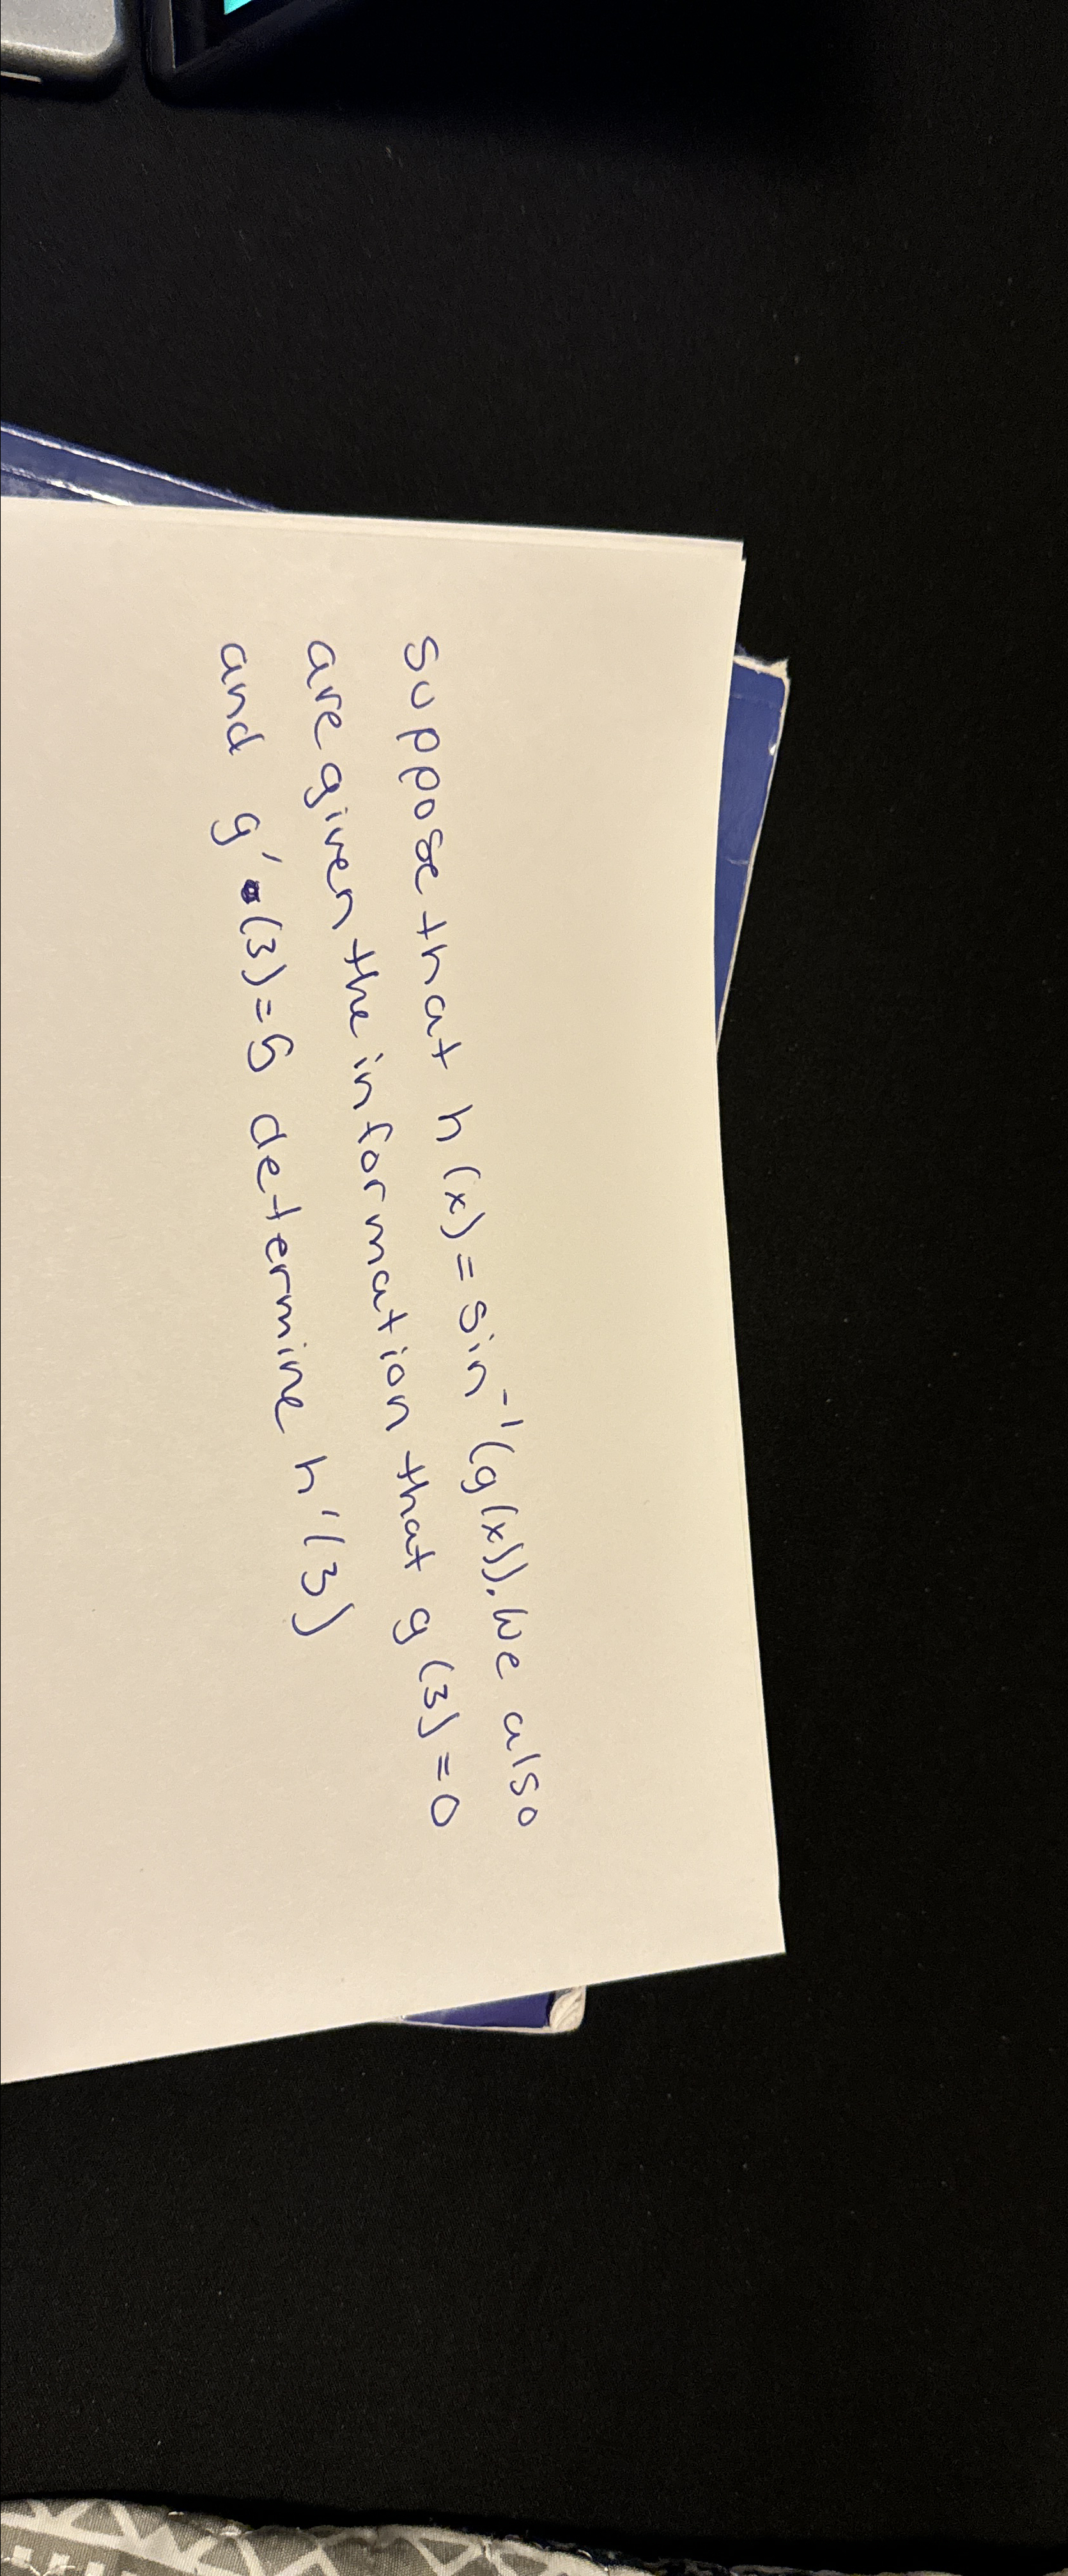 Suppose that h(x) = sin⁻¹(g(x)). We also
are given the information that g(3) = 0
and g'(3) = 5 determine h'(3)